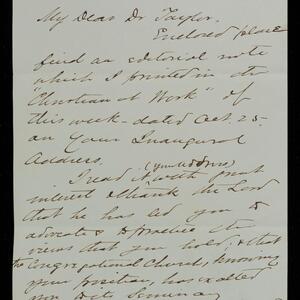 My Dear Dr Taylor.
Enclosed please
find an editorial note
which I printed in the
"Christian at Work" of
this week - dated Oct. 25 -
on Your Inaugural
Address.
(your address)
I read it with great
interest & thank the Lord
that he has led you to
advocate & to practice the
views that you hold; & that
the Congregational Church, knowing
your position, has exalted
you to its Seminary